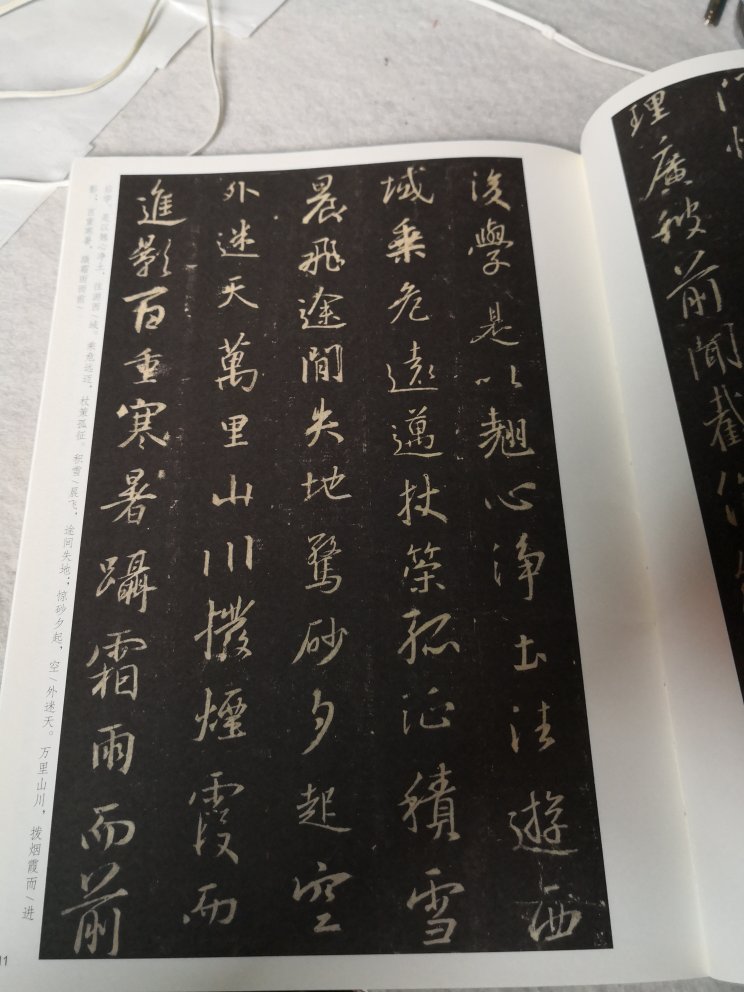 理廣彼前聞截
後學是以翹心淨土往遊西
域乘危遠邁杖策孤征積雪
晨飛途間失地驚砂夕起空
外迷天萬里山川撥煙霞而
進影百重寒暑躡霜雨而前
后学。是以翘心净土，往游西/域。乘危远迈，杖策孤征。积雪/晨飞，途间失地；惊砂夕起，空/外迷天。万里山川，拨烟霞而/进
影；百重寒暑，蹑霜雨而前/
11